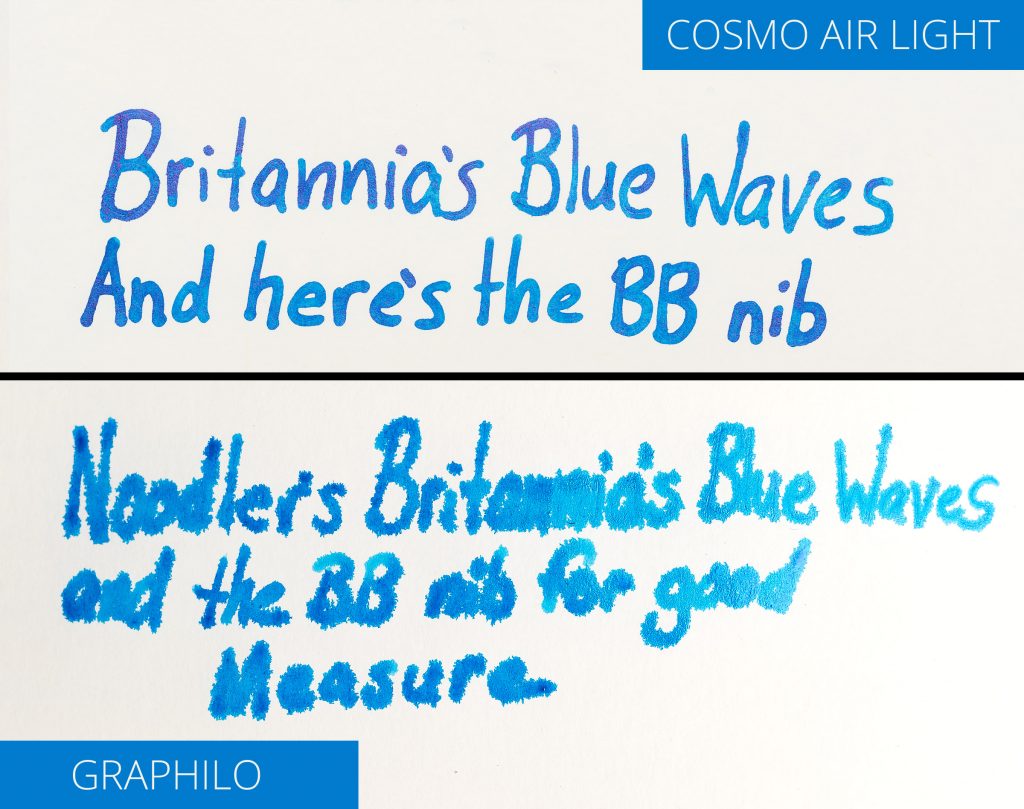 COSMO AIR LIGHT
Britannia's Blue Waves
And here's the BB nib
Noodlers Britannia's Blue Waves
and the BB nib for good
Measure.
GRAPHILO